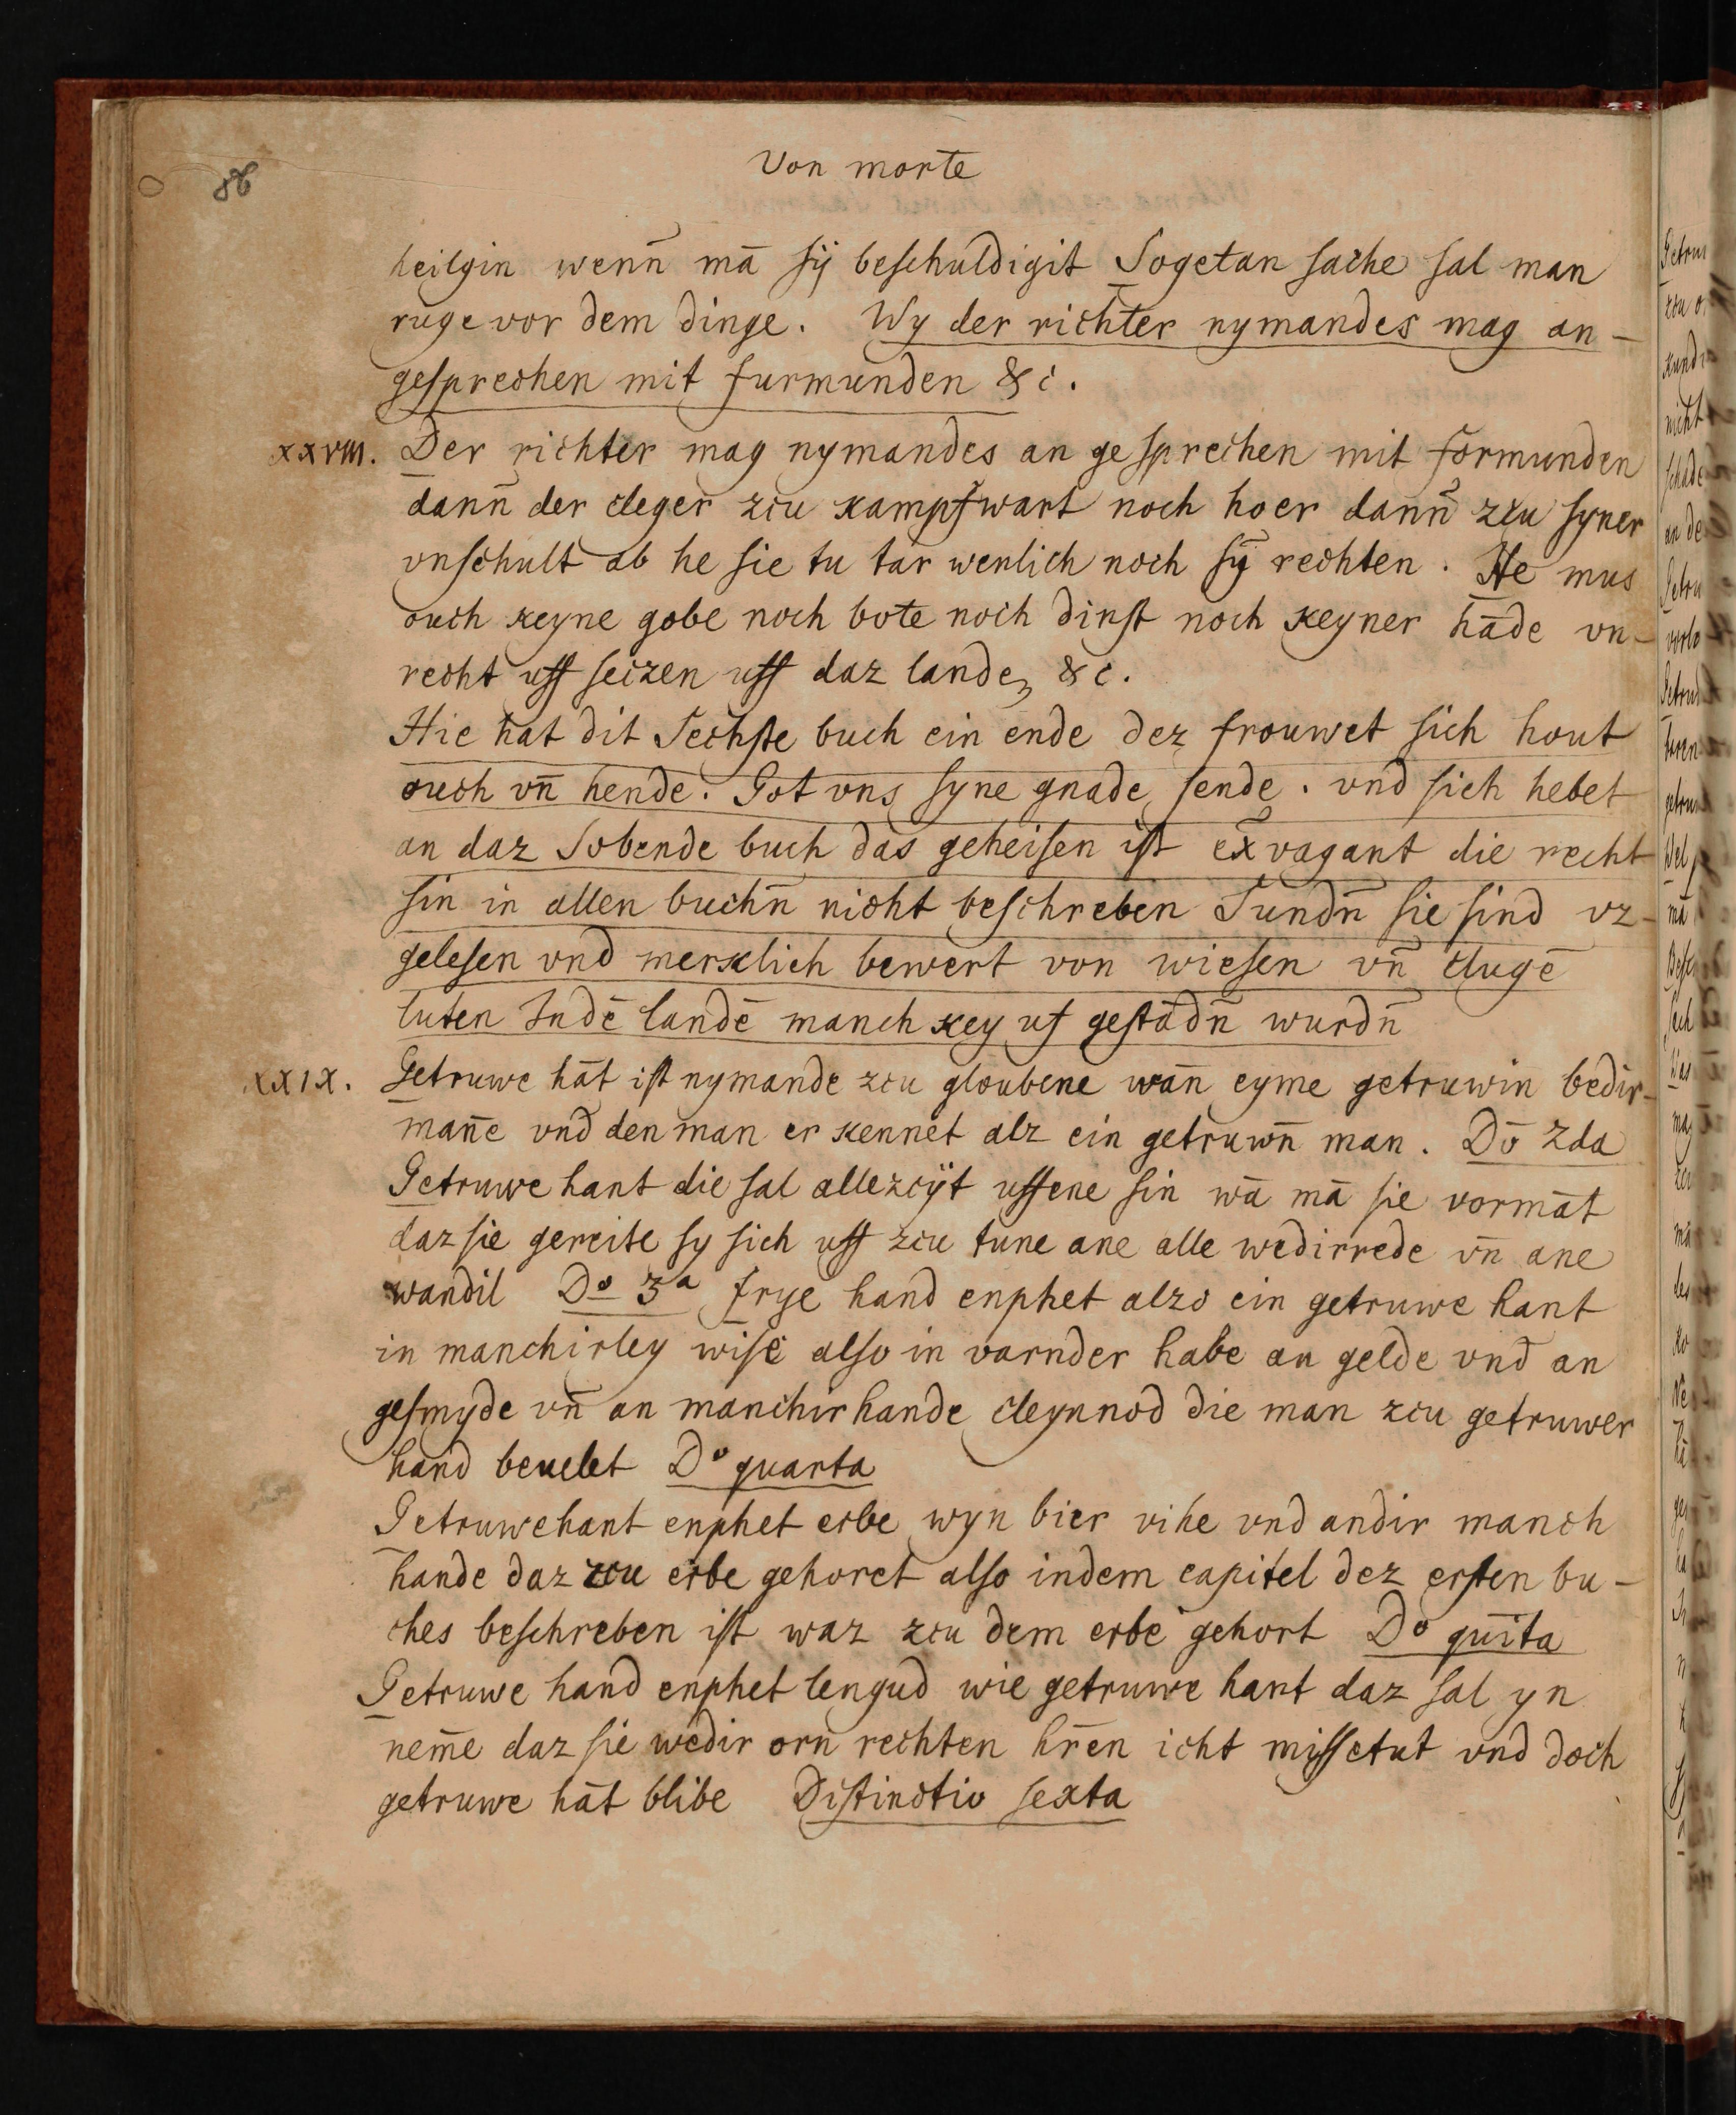 86
Von morte
heilgin wenn̄ mā sÿ beschuldigit Sogetan sache sal man
ruge vor dem dinge. Wy der richter nymandes mag an-
gesprechen mit furmunden &c.
xxviii. Der richter mag nymandes an gesprechen mit formunden
dann̄ der cleger zcu kampfwart noch hoer dann̄ zcu syner
vnschult ab he sie tu tar werlich noch sȳ rechten. He mus
ouch keyne gobe noch bote noch dinst noch keyner hāde vn-
recht uff seczen uff daz lande, &c.
Hie hat dit Sechste buch ein ende dez frouwet sich hout
ouch vn̄ hende. Got vns syne gnade sende. vnd sich hebet
an daz Sobende buch das geheisen ist exvagant die recht
sin in allen buchn̄ nicht beschreben Sundn̄ sie sind vz-
gelesen vnd merklich bewert von wiesen vn̄ clugē
luten Indē landē manch key uf gestādn̄ wurdn̄
xxix. Getruwe hāt ist nymande zcu gloubene wān eyme getruwin bedir-
man̄e vnd den man er kennet alz ein getruwn̄ man. Dō 2da
Getruwe hant die sal allezcÿt uffene sin wā mā sie vormāt
daz sie gereite sy sich uff zcu tune ane alle wedirrede vn̄ ane
wandil Do 3a frye hand enphet alzo ein getruwe hant
in manchirley wise also in varnder habe an gelde vnd an
gesmyde vn̄ an manchir hande cleynnod die man zcu getruwer
hand beuelet Do quarta
Getruwehant enphet erbe wyn bier vihe vnd andir manch
hande daz zcu erbe gehoret also indem capitel dez ersten bu-
ches beschreben ist waz zcu dem erbe gehort Do quīta
Getruwe hand enphet lengud wie getruwe hant daz sal yn
nem̄e daz sie wedir orn̄ rechten hr̄en icht missetut vnd doch
getruwe hāt blibe Distinctio sexta